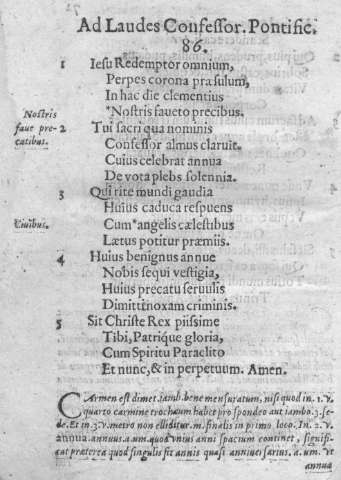 Ad Laudes Confessor. Pontific.
86.
1 Iesu Redemptor omnium,
Perpes corona præsulum,
In hac die clementius
*Nostris faueto precibus.
Nostris faue precatibus.
2 Tui sacri qua nominis
Confessor almus claruit.
Cuius celebrat annua
Deuota plebs solennia.
3 Qui rite mundi gaudia
Huius caduca respuens
Cum*angelis cælestibus
Ciuibus.
Lætus potitur præmiis.
4 Huius benignus annue
Nobis sequi vestigia,
Huius precatu seruulis
Dimitti noxam criminis.
5 Sit Christe Rex piissime
Tibi, Patrique gloria,
Cum Spiritu Paraclito
Et nunc, & in perpetuum. Amen.
CArmen est dimet. iamb. bene mensuratum, nisi quod in. 1. v.
quarto carmine trochæum habet pro spondeo aut iambo. 3. se-
de. Et in. 3. v. metro non elliditur. m. finalis in primo loco. In. 2. v.
annua. annuus. a. um. quod vnius anni spacium continet, signifi-
cat præterea quod singulis fit annis quasi anniuersarius. a. um. vt
annua